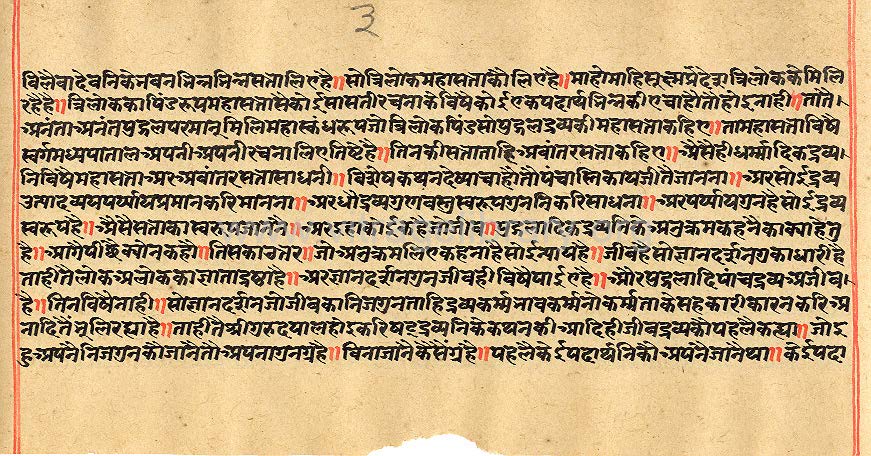 ३
विलैवादेवनिकेनवनभिन्नभिन्नसतालिएहै॥सोत्रिलोकमहासताकौलिएंहै॥माहोमाहिसूक्ष्मप्रदेशत्रिलोककेमिलि
रहेहै॥त्रिलोककापिंडरूपमहासतासकोईसासतीरचनाकेविषैकोईएकपदार्थभिन्नकीएचाहौतोहोइनाही॥तातै।
अनंताअनंतपुद्गलपरमानूमिलिमहास्कंधरूपजोत्रिलोकपिंडसोपुद्गलद्रव्यकीमहासताकहिए॥तामहासताविषै
स्वर्गमध्यपातालअपनीअपनीरचनालिएतिष्टैहै॥तिनकीसताताहिअवांतरसताकहिए॥अैसैहीधर्मादिकद्रव्य।
निविषैमहासताअरअवांतरसतासाधनी॥विशेषकथनदेष्याचाहोतोपंचास्तिकायजीतैजानना॥अरसोईद्रव्य
उत्पादव्ययपर्यायप्रमानकरिमानना॥अरध्रौव्यद्रव्यगुणवस्तुस्वरूपगुननिकरिसाधना॥अरपर्यायगुनहैसोईद्रव्य
स्वरूपहै॥अैसैसताकास्वरूपजानने॥अरइहाकोईकहैजोजीव॥पुद्गलादिकद्रव्यनिकेअनुक्रमकहनैकाक्याहेतु
है॥आगैपीछैक्योनकहौ॥तिसकाउतर॥जोअनुक्रमलिएकहनाहैसोईन्यायहै॥जीवहैसोज्ञानदर्शनगुनकाधारीहै
ताहीतैलोकअलोककाज्ञाताद्रष्टाहै॥अरज्ञानदर्शनगुनजीवहीविषैपाईएहै॥औरपुद्गलादिपांचद्रव्यअजीव।
है॥तिनविषैनाही॥सोज्ञानदर्शनजोजीवकानिजगुनताहिद्रव्यकर्मभावकर्मनोकर्मताकेसहकारीकारनकरिअ
नादितैंभूलिरह्याहै॥ताहीतैश्रीगुरुदयालहोइकरिषट्द्रव्यनिकेकथनकीआदिहीजीवद्रव्यकौपहलैकह्या॥जोइ
हुअपनैनिजगुनकौजानैतौअपनागुनग्रहै॥विनाजानैकैसैंग्रहै॥पहलैकेईपदार्थनिकौअपनैजानैथा॥केईपदा